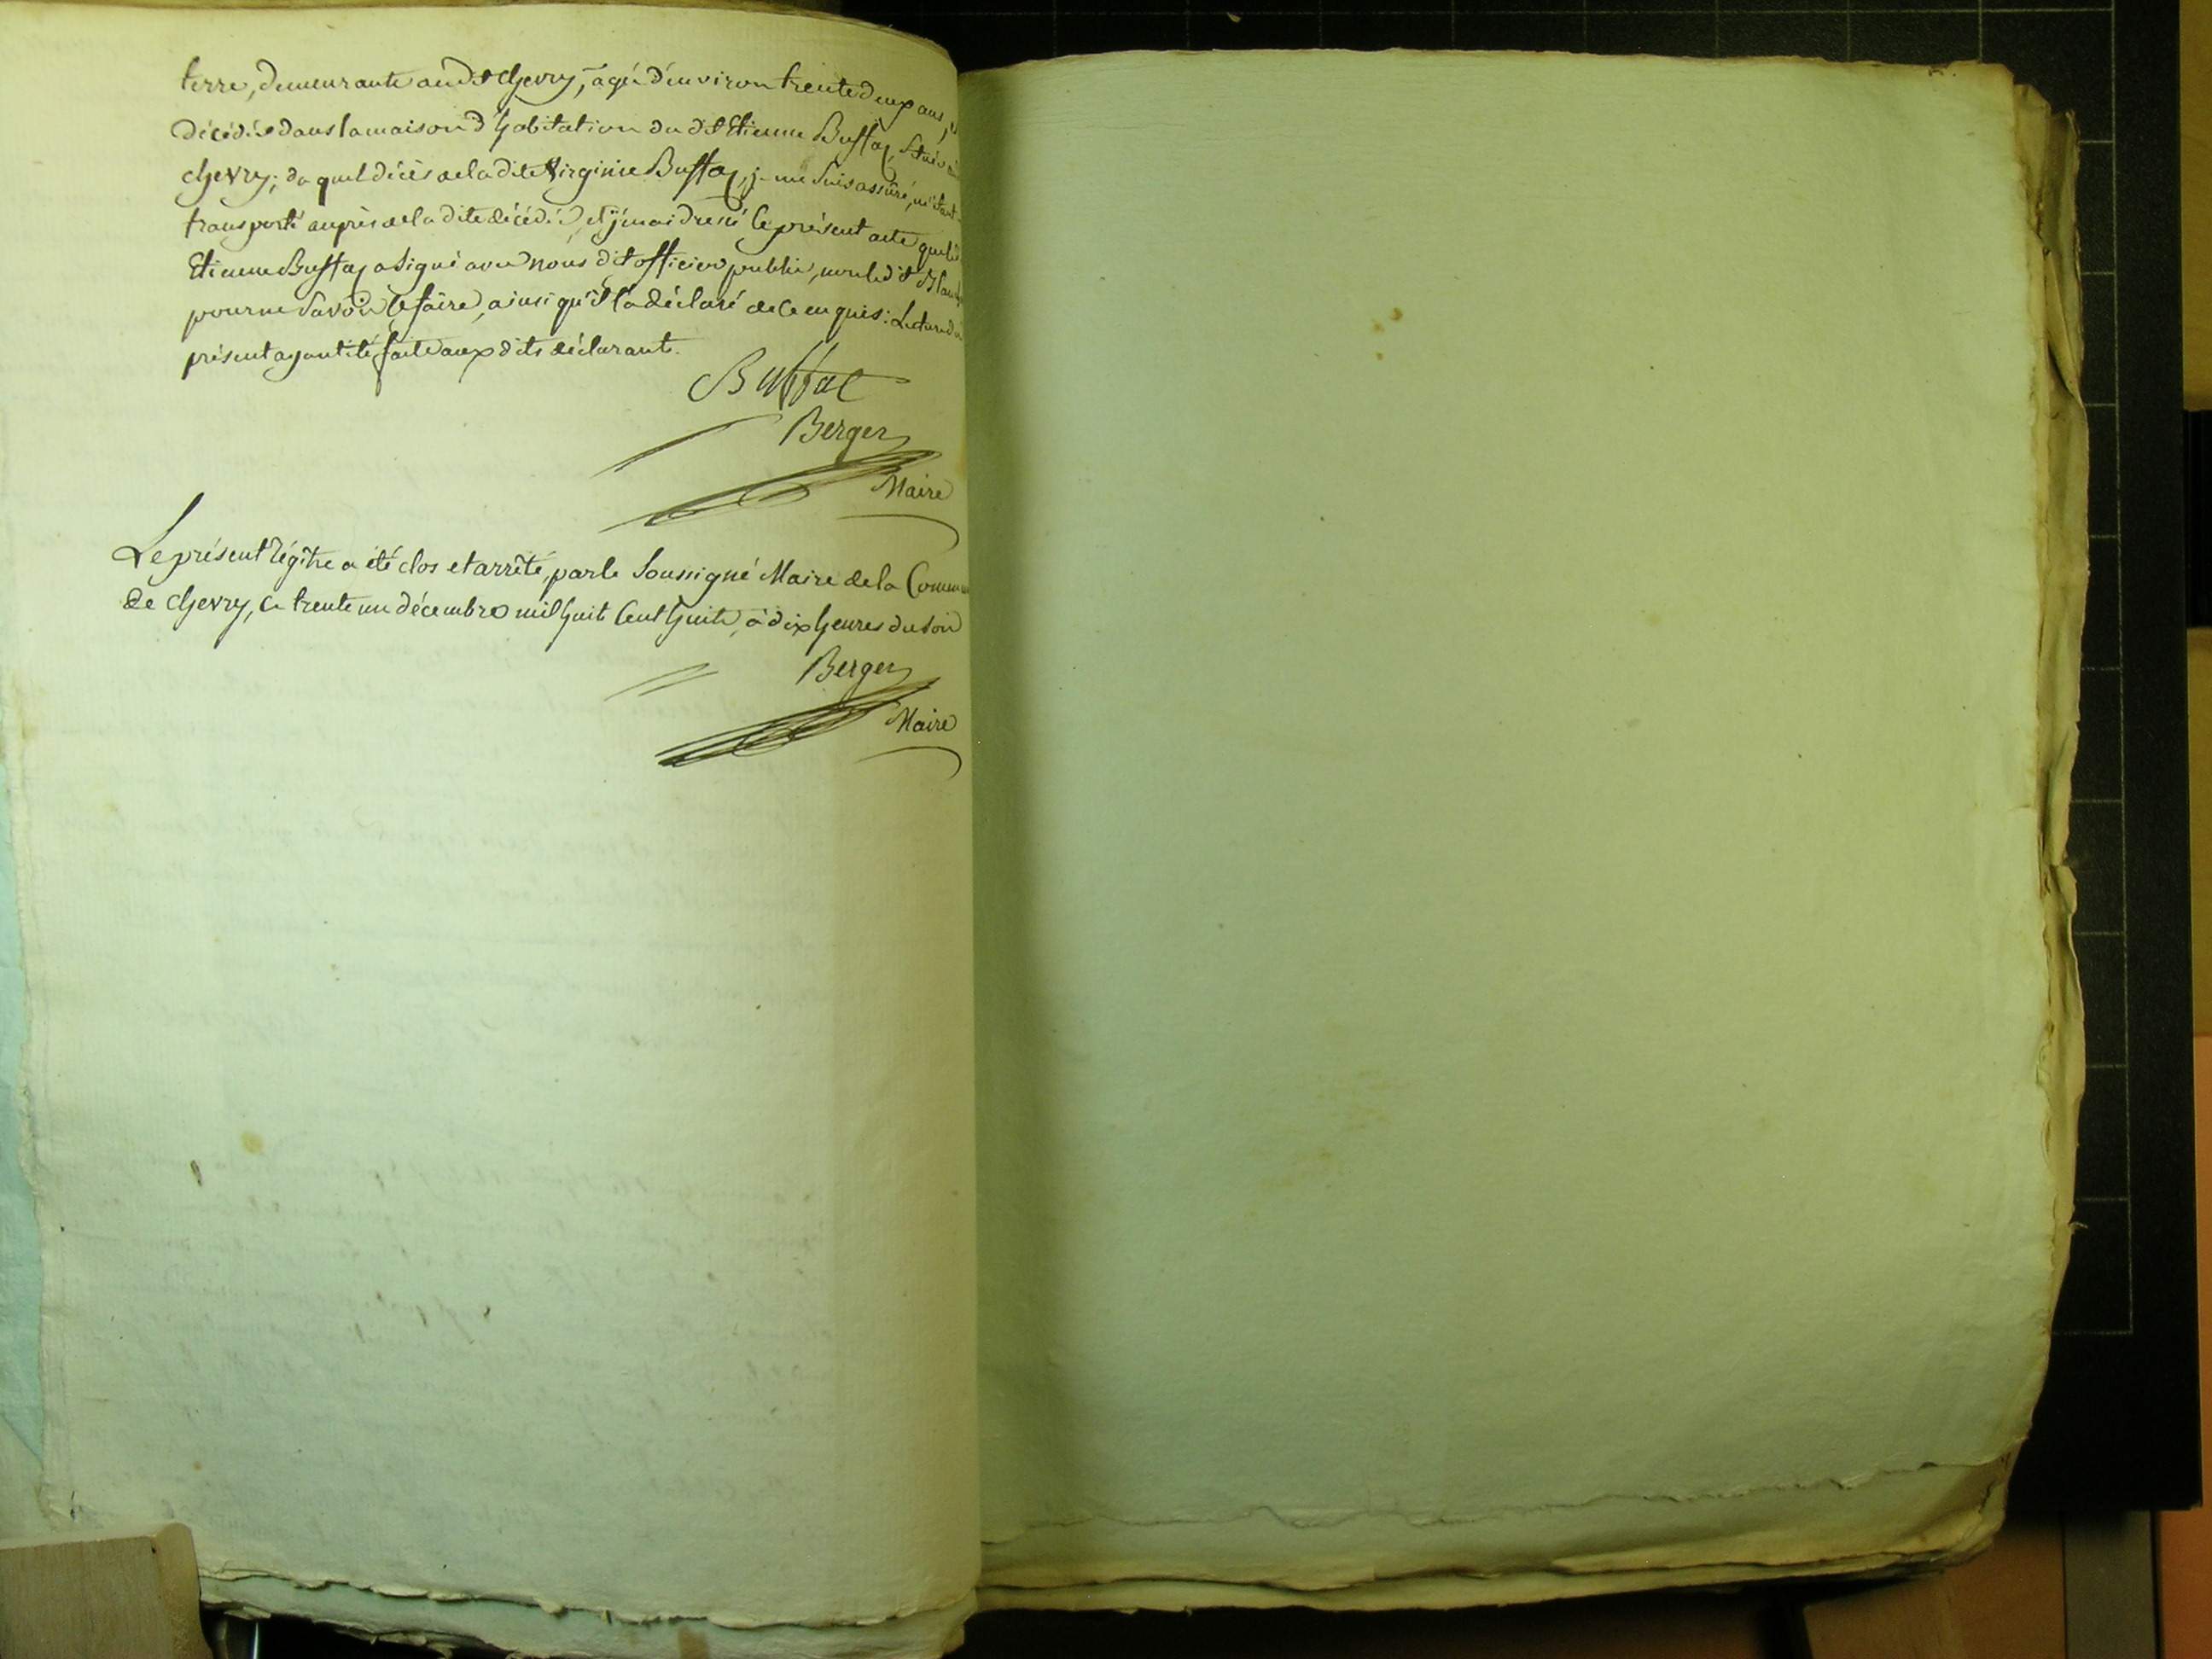 terre, demeurante au dit Chevry, agée d'environ trente deux ans,
décédée dans la maison d'habitation du dit Etienne Buffaz, située à
Chevry; du quel décès de la dite Virginie Buffaz, je me suis assûré, m'étant
transporté auprès de la dite décédée, et j'en ai dressé le présent acte que le dit
Etienne Buffaz a signé avec nous dit officier public, non le dit
pour ne savoir le faire, ainsi qu'il l'a déclaré de ce enquis: Lecture du
présent ayant été faite aux dits déclarants.
Buffat
Berger
Maire
Le présent régître a été clos et arrêté, par le Soussigné Maire de la Commune
de Chevry, ce trente un décembre mil huit Cent huit, à dix heures du soir
Berger
Maire